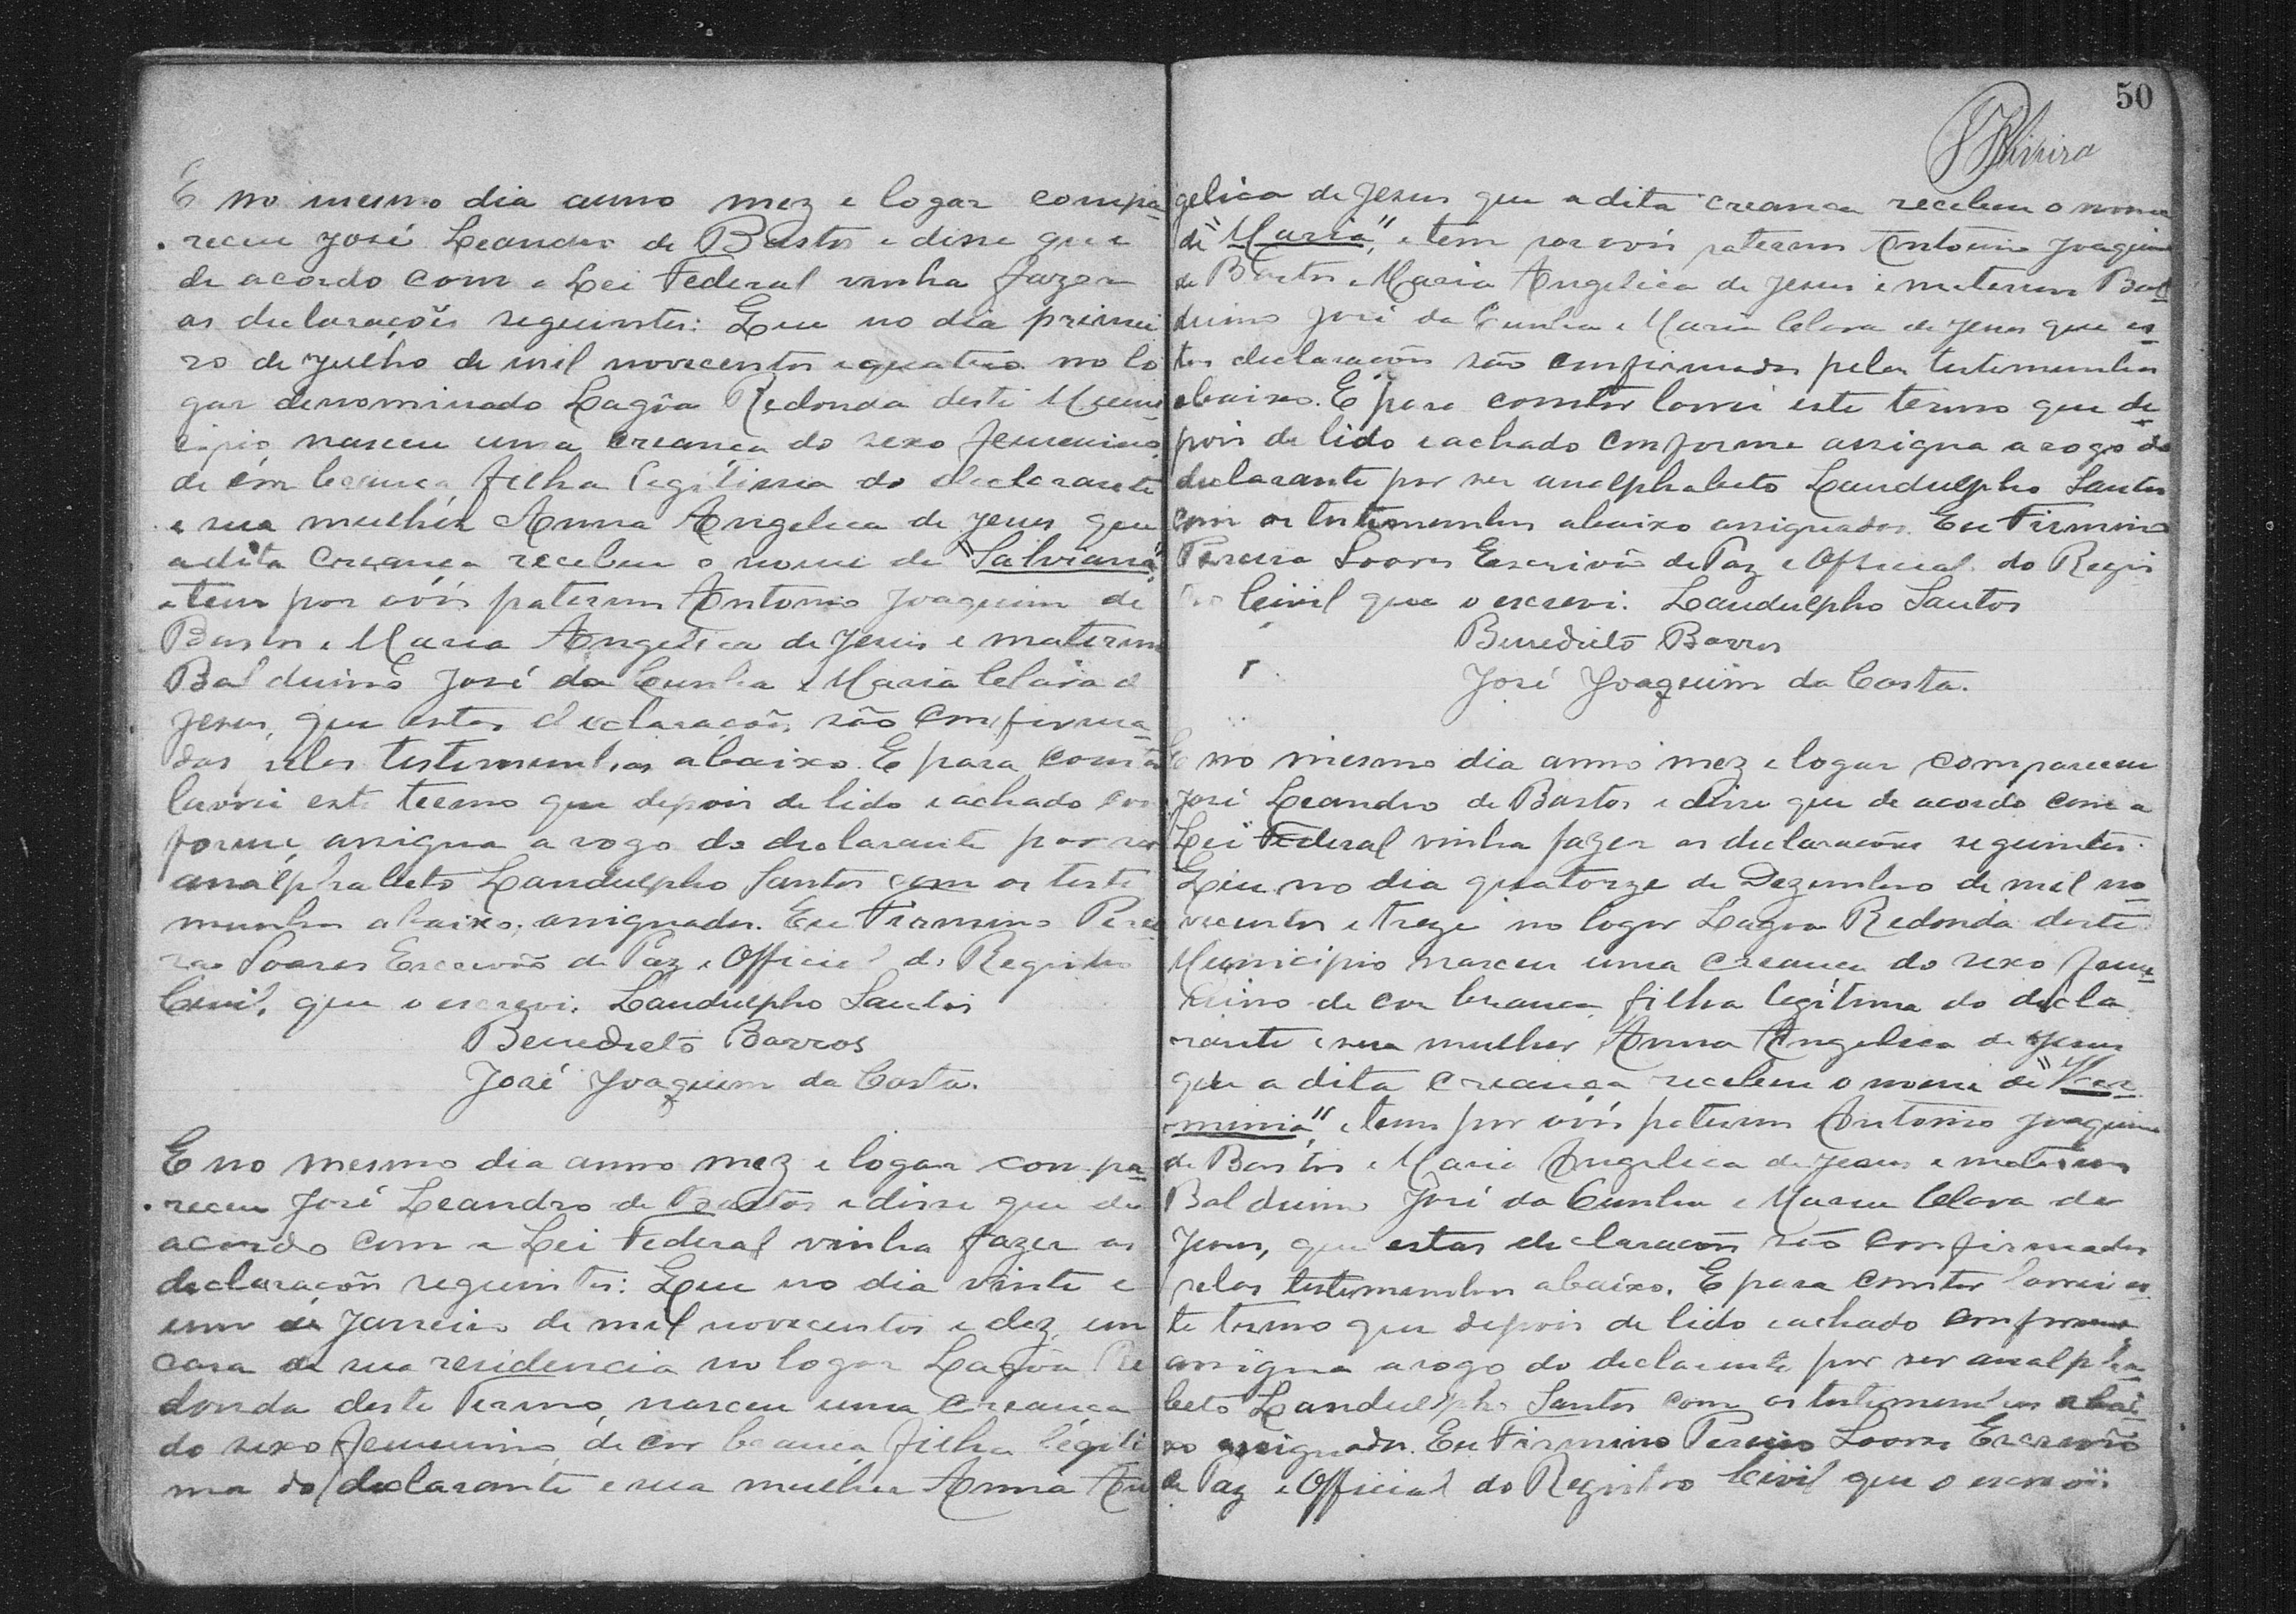 E no mesmo dia anno mez e logar compa
receu José Leandro de Bastos e disse que
de acordo com a Lei Federal vinha fazer
as declarações seguintes: Que no dia primei
ro de Julho de mil novecentos e quatro no lo
gar denominado Lagôa Redonda deste Muni
cipio, nasceu uma creança do sexo femenino
de côr branca, filha legitima do declarante
e sua mulher Anna Angelica de Jesus que
a dita creança recebeu o nome de "Salviana"
e tem por avós paternos Antonio Joaquim de
Bastos e Maria Angelica de Jesus e maternos
Balduino José da Cunha e Maria Clara d
Jesus, que estas declarações são confirma
das pelas testemunhas abaixo. E para consta
lavrei este termo que depois de lido e achado con
forme, assigna a rogo do declarante por ser
analphabeto Landulpho Santos com as teste
munhas abaixo, assignadas. Eu Firmino Perei
ra Soares Escrivão de Paz e Official do Registro
Civil, que o escrevi. Landulpho Santos
Benedicto Barros
José Joaquim da Costa.
E no mesmo dia anno mez e logar compa
receu José Leandro de Bastos e disse que de
acordo com a Lei Federal vinha fazer as
declarações seguintes: Que no dia vinte e
um de Janeiro de mil novecentos e dez, em
casa de sua residencia no logar Lagôa Re
donda deste Termo, nasceu uma creança
do sexo femenino, de cor branca, filha legiti
ma do declarante e sua mulher Anna An
50
gelica de Jesus que a dita creança recebeu o nome
de "Maria", e tem por avós paternos Antonio Joaquim
de Bastos e Maria Angelica de Jesus e maternos Bal
duino José da Cunha e Maria Clara de Jesus que es
tas declarações são confirmadas pelas testemunhas
abaixo. E para constar lavrei este termo que de
pois de lido e achado conforme assigna a rogo do
declarante por ser analphabeto Landulpho Santos
com as testemunhas abaixo assignadas. Eu Firmino
Pereira Soares Escrivão de Paz e Official do Regis
tro Civil que o escrevi. Landulpho Santos
Benedicto Barros
José Joaquim da Costa.
E no mesmo dia anno mez e logar compareceu
José Leandro de Bastos e disse que de acordo com a
Lei Federal vinha fazer as declarações seguintes:
Que no dia quatorze de Dezembro de mil no
vecentos e treze no logar Lagoa Redonda deste
Municipio nasceu uma creança do sexo feme
nino de cor branca, filha legítima do decla
rante e sua mulher Anna Angelica de Jesus
que a dita creança recebeu o nome de "Her
minia", e tem por avós paternos Antonio Joaquim
de Bastos e Maria Angelica de Jesus e maternos
Balduino José da Cunha e Maria Clara de
Jesus, que estas declarações são confirmadas
pelas testemunhas abaixo. E para constar lavrei es
te termo que depois de lido e achado conforme
assigna a rogo do declarante por ser analpha
beto Landulpho Santos com as testemunhas abai
xo assignadas. Eu Firmino Pereira Soares Escrivão
de Paz e Official do Registro Civil que o escrevi.